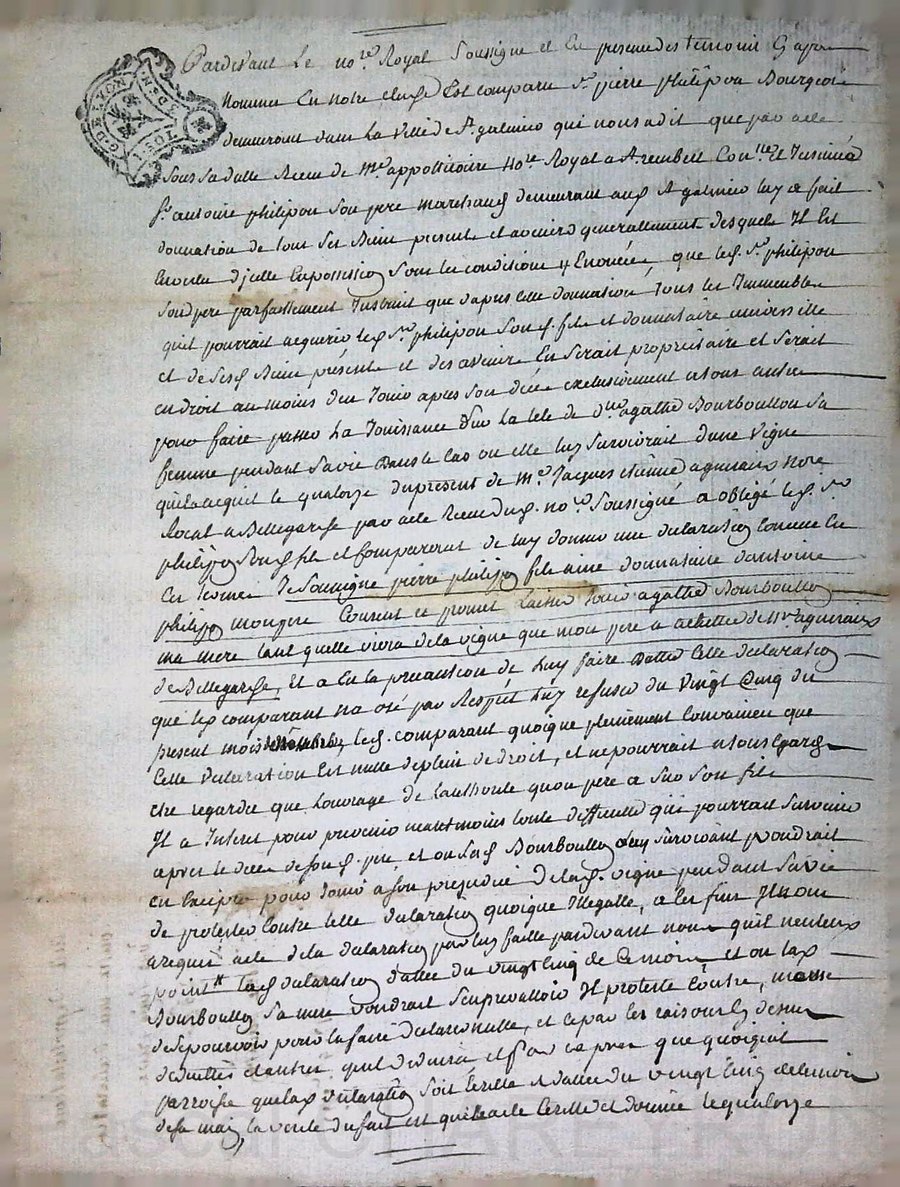 Pardevant Le no.re Royal Soussigné et En presence des temoins Cy apres
Nommes En notre etude Est comparu S.r pierre philipon Bourgeois
demeurant dans La Ville de S.t galmier qui nous a dit que par acte
sous sa datte Recu de M.e appollinaire no.re Royal a Con.llé et Insinué
S.r antoine philipon son pere marchand demeurant aud S.t galmier luy a fait
donnation de tous ses Biens presents et avenirs generallement desquels Il Est
En possession sous les conditions y Enoncées, que led. S.r philipon
son pere parfaitement Instruit que d'apres cette donnation, tous les Immeubles
qu'il pourrait acquerir led S.r philipon son d. fils et donnataire universelle
et de sesd Biens présents et des avenirs En serait propriétaire et serait
en droit au moins d'en Jouir apres son décès exclusivement a tous autres
pour faire passer La Jouissance sur La tete de d.lle agathe Bourboullon sa
femme pendant sa vie Dans le cas ou elle luy survivrait d'une Vigne
qu'il a acquit le quatorze du present de M.e Jacques etienne aguiraux no.re
Royal a Bellegarde par acte Recu dud. no.re Soussigné a obligé led. S.r
philipon sond fils et Comparant de luy donner une déclaration Concue En
Ces termes Je Soussigné pierre philipon fils ainé donnataire d'antoine
philipon mon pere Consent et promet laisser Jouir agathe Bourboullon
ma mere tant quelle vivra de la vigne que mon pere a achettée de M.r aguiraux
de Bellegarde, Et a Eu la precaution de luy faire Datter Cette declaration
que led comparant n'a osé par Respect luy refuser du Vingt Cinq du
present mois led. comparant quoique pleinement Convaincu que
Cette declaration Est nulle de plein de droit, et ne pourrait a tous Egards
etre regardée que L'ouvrage de L'authorité qu'un pere a sur son fils
Il a Interet pour prevenir neantmoins toute difficulté qui pourrait survenir
apres le deces de sond. pere et ou lad Bourboullon luy survivant voudrait
En Exciper pour Jouir a son prejudice de lad. vigne pendant sa vie
de protester Contre cette declaration quoique Illegalle, a ces fins Il nous
a requis acte de la declaration par luy faitte pardevant nous qu'il n'entend
point lad declaration dattée du vingt Cinq de Ce mois et ou lad
Bourboullon sa mere voudrait s'en prevalloir Il proteste Contre, mesme
de se pourvoir pour la faire declarer nulle, et ce par les raisons Cy dessus
deduittes et autres quil deduira et par ce que quoiquil
parroisse que lad declaration soit Ecritte et dattée du vingt Cinq de ce mois
de sa main, la verité du fait est quelle a eté Ecritte et donnée le quatorze